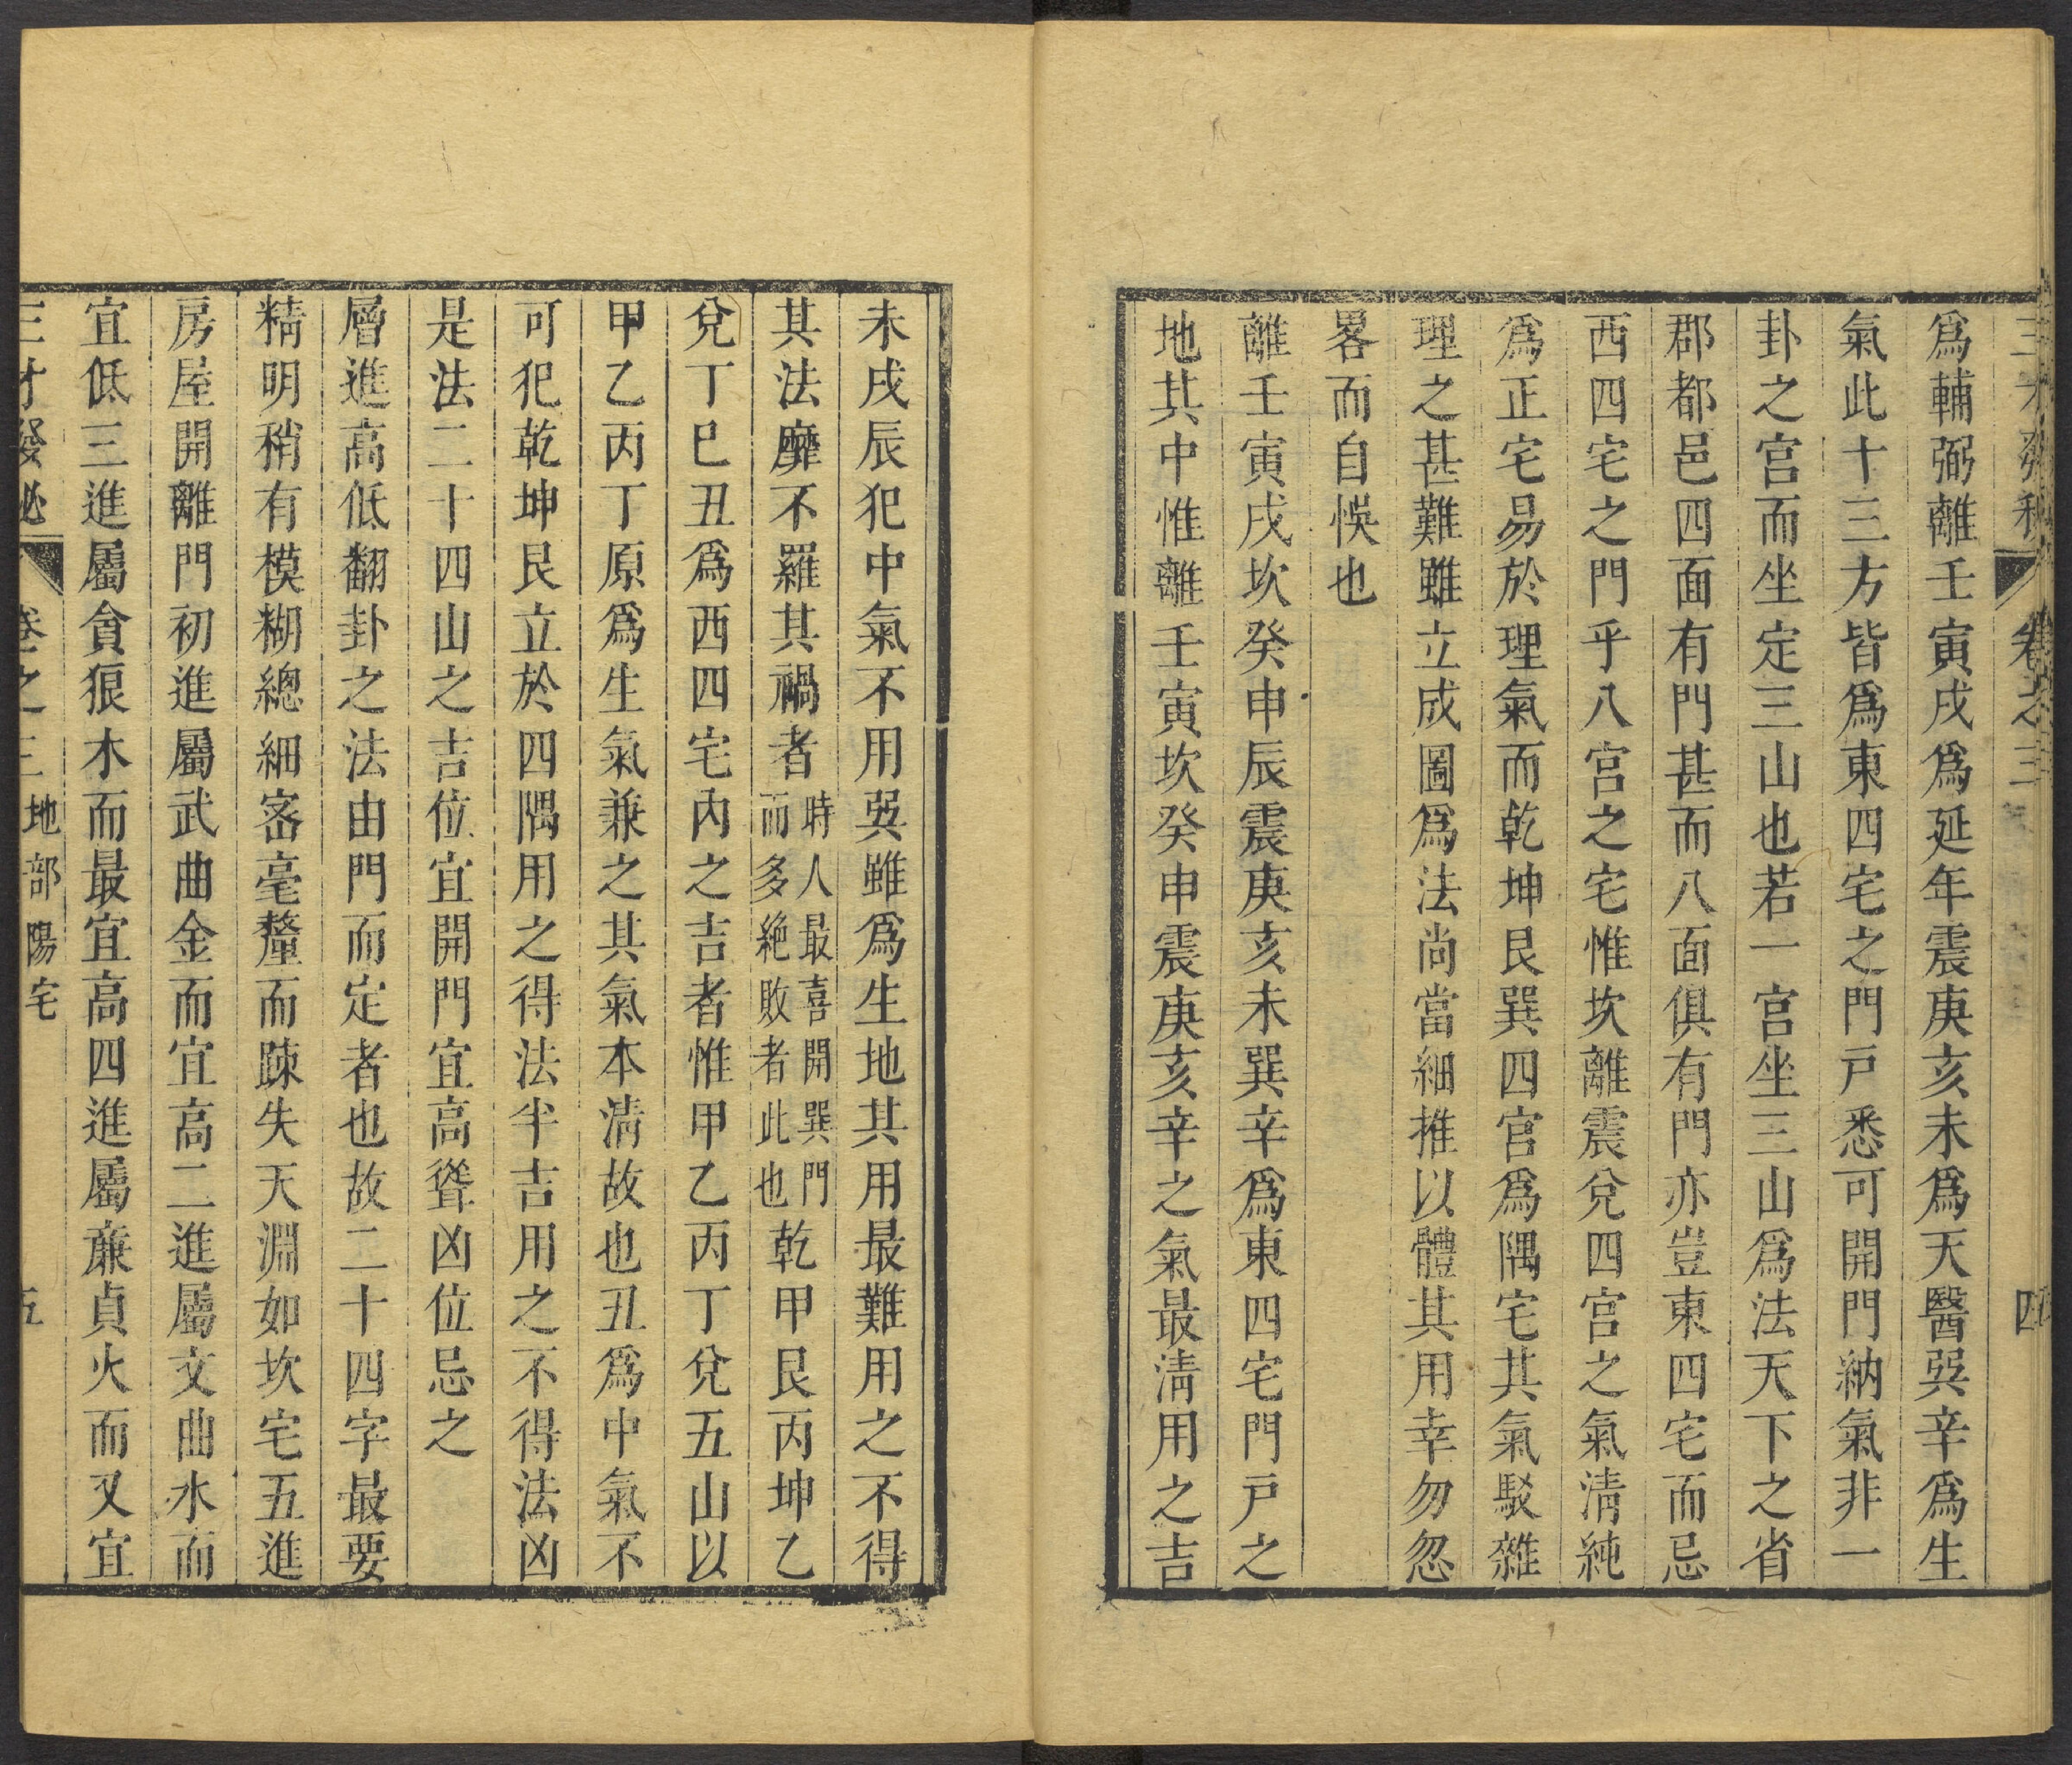 三才發秘 卷之三 四
爲輔弼離壬寅戌爲延年震庚亥未爲天醫巽辛爲生
氣此十三方皆爲東四宅之門戸悉可開門納氣非一
卦之宫而坐定三山也若一宫坐三山爲法天下之省
郡都邑四面有門甚而八面俱有門亦豈東四宅而忌
西四宅之門乎八宫之宅惟坎離震兌四宫之氣淸純
爲正宅易於理氣而乾坤艮巽四宫爲隅宅其氣駁雜
理之甚難雖立成圖爲法尚當細推以體其用幸勿忽
畧而自悞也
離壬寅戌坎癸申辰震庚亥未巽辛爲東四宅門戸之
地其中惟離壬寅坎癸申震庚亥辛之氣最淸用之吉
未戌辰犯中氣不用巽雖爲生地其用最難用之不得
其法靡不羅其禍者時人最喜開巽門而多絶敗者此也乾甲艮丙坤乙
兌丁巳丑爲西四宅内之吉者惟甲乙丙丁兌五山以
甲乙丙丁原爲生氣兼之其氣本淸故也丑爲中氣不
可犯乾坤艮立於四隅用之得法半吉用之不得法凶
是法二十四山之吉位宜開門宜高聳凶位忌之
層進高低翻卦之法由門而定者也故二十四字最要
精明稍有模糊總細宻毫釐而踈失天淵如坎宅五進
房屋開離門初進屬武曲金而宜高二進屬文曲水而
宜低三進屬貪狼木而最宜高四進屬亷貞火而又宜
三才發秘 卷之三 地部 陽宅 五